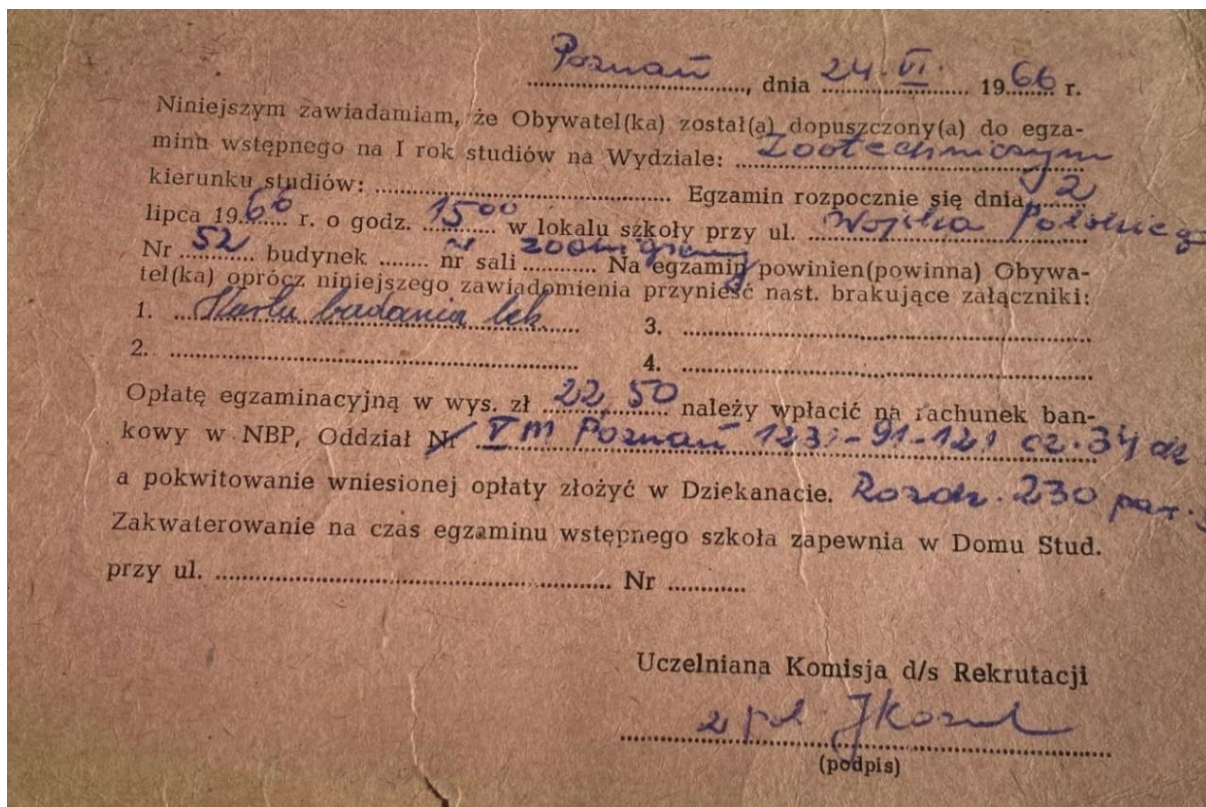 Poznań, dnia 24.VI. 1966 r.
Niniejszym zawiadamiam, że Obywatel(ka) został(a) dopuszczony(a) do egza-
minu wstępnego na I rok studiów na Wydziale: Zootechnicznym
kierunku studiów: .......... Egzamin rozpocznie się dnia 2
lipca 1966 r. o godz. 15⁰⁰ w lokalu szkoły przy ul. Wojska Polskiego
Nr 52 budynek ........ nr sali Na egzamin powinien(powinna) Obywa-
tel(ka) oprócz niniejszego zawiadomienia przynieść nast. brakujące załączniki:
1. Kartę badania lek. 3. ..........
2. .......... 4. ..........
Opłatę egzaminacyjną w wys. zł 22,50 należy wpłacić na rachunek ban-
kowy w NBP, Oddział Nr V M Poznań 1231-91-121 cz. 34 dz
a pokwitowanie wniesionej opłaty złożyć w Dziekanacie. Rozdz. 230 par.
Zakwaterowanie na czas egzaminu wstępnego szkoła zapewnia w Domu Stud.
przy ul. .......... Nr ..........
Uczelniana Komisja d/s Rekrutacji
(podpis)